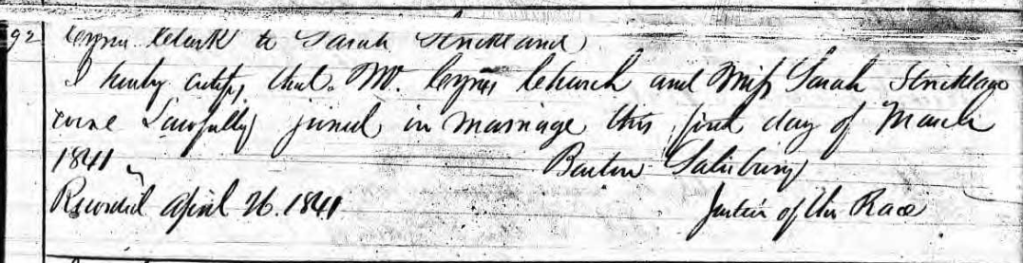 92
Cyrus Church to Sarah Strickland
I hereby certify that Mr. Cyrus Church and Miss Sarah Strickland
were Lawfully joined in marriage this first day of March
1841
Barton Salisbury
Recorded April 26. 1841
Justice of the Peace